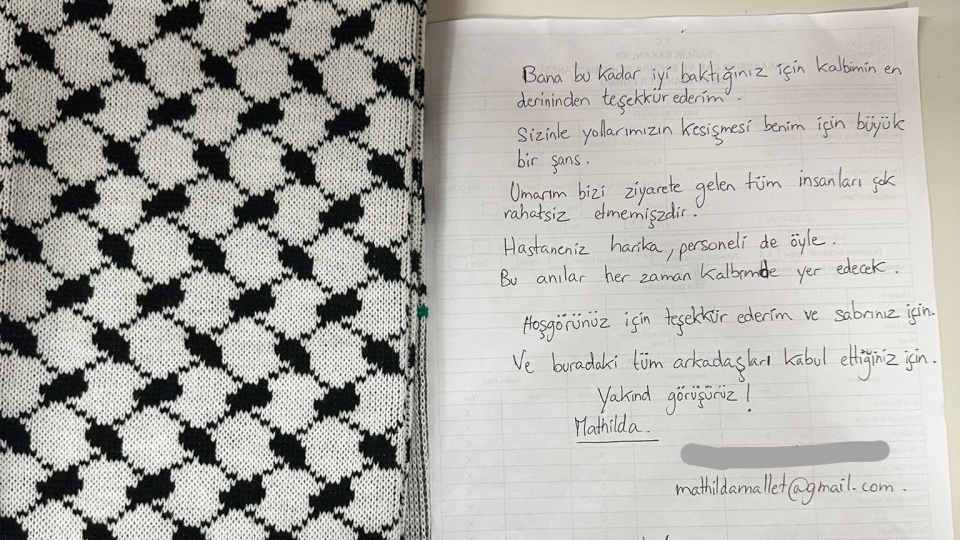 Bana bu kadar iyi baktığınız için kalbimin en
derininden teşekkür ederim.
Sizinle yollarımızın kesişmesi benim için büyük
bir şans.
Umarım bizi ziyarete gelen tüm insanları çok
rahatsiz etmemişzdir.
Hastaneniz harika, personeli de öyle.
Bu anılar her zaman kalbımde yer edecek.
Hoşgörünüz için teşekkür ederim ve sabrınız için.
Ve buradaki tüm arkadaşları kabul ettiğiniz için.
Yakınd görüşürüz!
Mathilda.
mathildamallet@gmail.com.